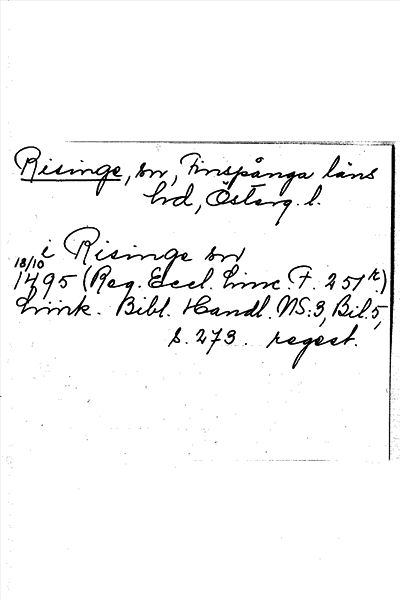 Risinge, sn, Finspånga läns
hd, Österg. l.
i Risinge sn
18/10
1495 (Reg. Eccl. Linc. F. 251 r.)
Link. Bibl. Handl. NS:3, Bil. 5,
s. 273. regest.